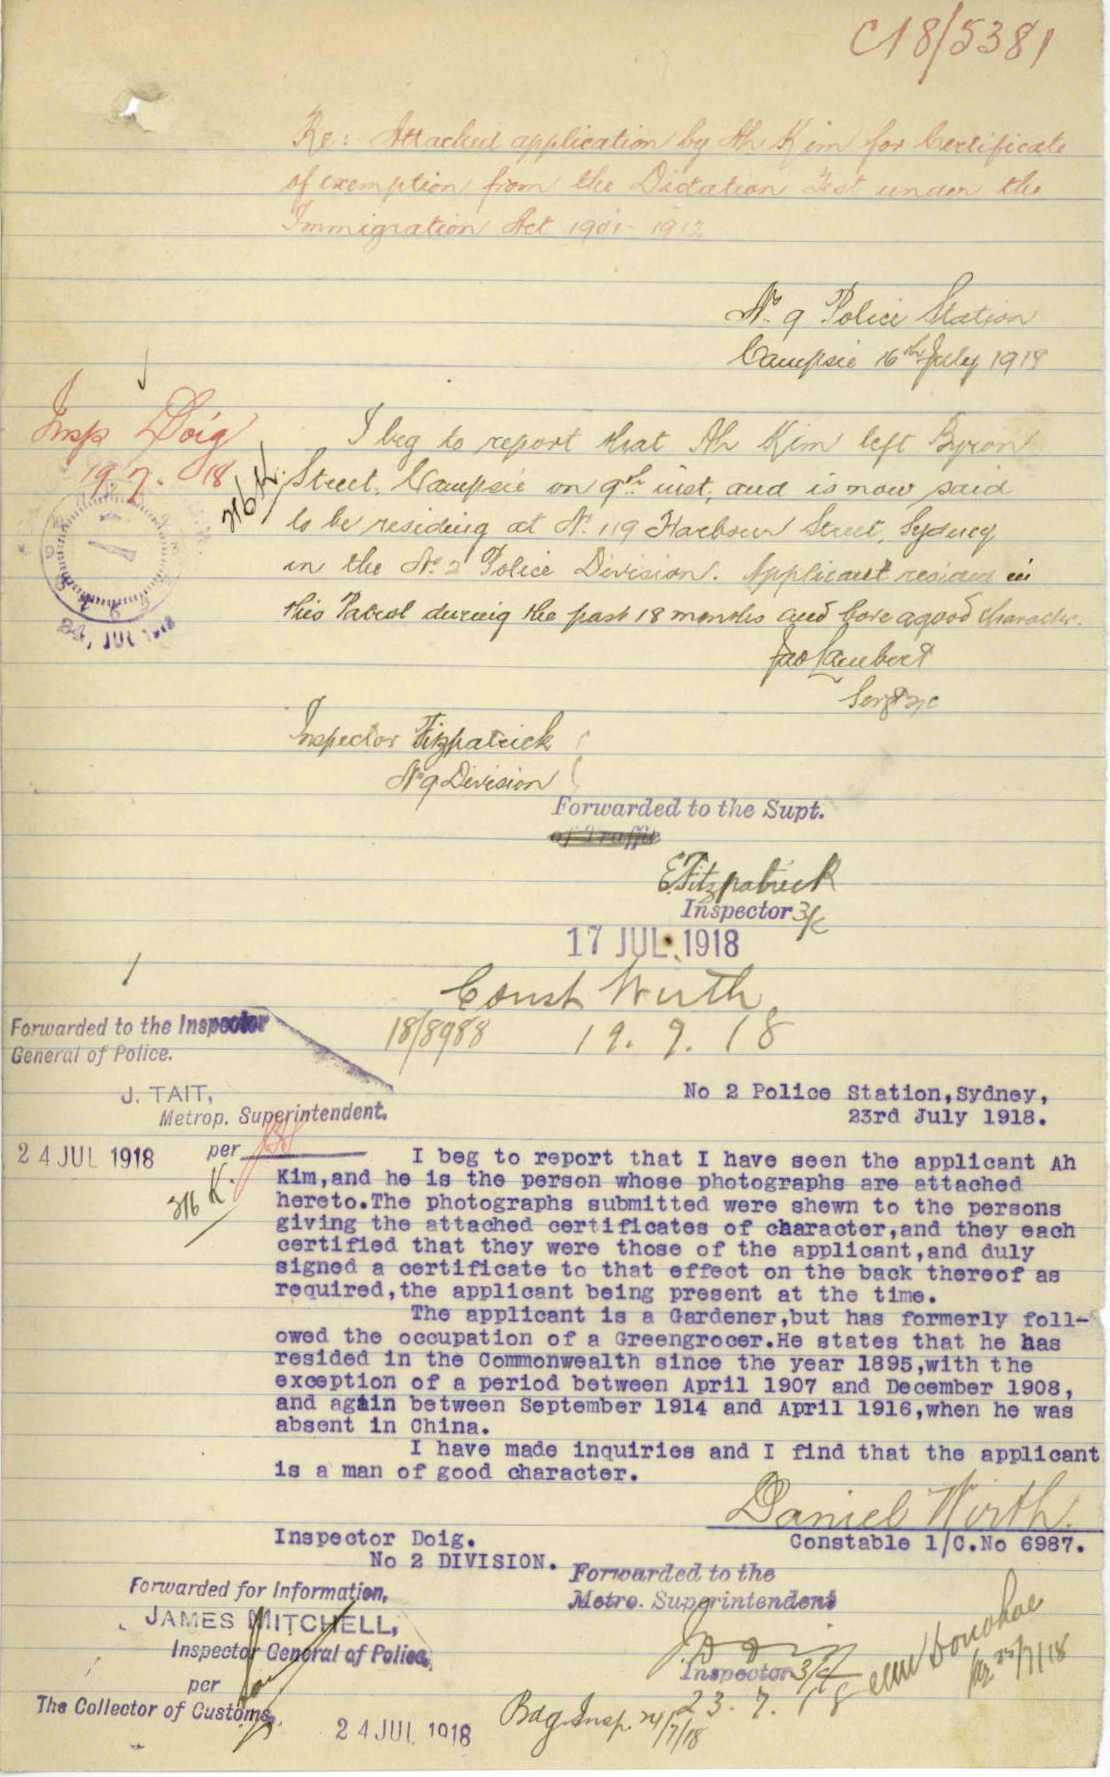 C18/5381
Re: Attached application by Ah Kim for Certificate
of exemption from the Dictation Test under the
Immigration Act 1901-1912
No. 9 Police Station
Campsie 16th July 1918
Insp Doig
19.7.18
316 K.
I beg to report that Ah Kim left Byron
Street, Campsie on 9th inst, and is now said
to be residing at No. 119 Harbour Street, Sydney
in the No. 2 Police Division. Applicant resided in
this Patrol during the past 18 months and bore a good character.
24 JUL 1918
Jas Lambert
Sergt
Inspector Fitzpatrick
No 9 Division
Forwarded to the Supt.
of Traffic
E Fitzpatrick
Inspector 3/c
17 JUL. 1918
Const Wirth
18/8988 19.7.18
Forwarded to the Inspector
General of Police.
J. TAIT,
Metrop. Superintendent.
24 JUL 1918 per
316 K.
No 2 Police Station,Sydney,
23rd July 1918.
I beg to report that I have seen the applicant Ah
Kim,and he is the person whose photographs are attached
hereto.The photographs submitted were shewn to the persons
giving the attached certificates of character,and they each
certified that they were those of the applicant,and duly
signed a certificate to that effect on the back thereof as
required,the applicant being present at the time.
The applicant is a Gardener,but has formerly foll-
owed the occupation of a Greengrocer.He states that he has
resided in the Commonwealth since the year 1895,with the
exception of a period between April 1907 and December 1908,
and again between September 1914 and April 1916,when he was
absent in China.
I have made inquiries and I find that the applicant
is a man of good character.
Daniel Wirth.
Constable 1/C.No 6987.
Inspector Doig.
No 2 DIVISION.
Forwarded to the
Metro. Superintendent
Inspector 3/c
23.7.18
Forwarded for Information,
JAMES MITCHELL,
Inspector General of Police,
per
The Collector of Customs.
24 JUL 1918
Bdg Insp. 24/7/18
Donohoe
25/7/18